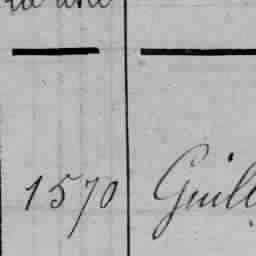 1570 Guill